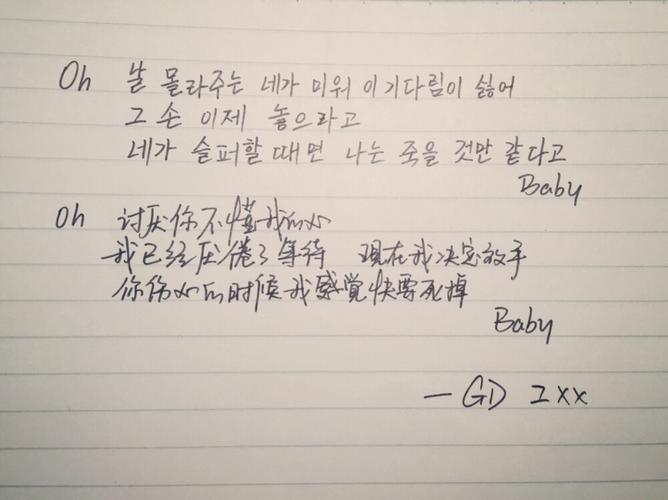 Oh 날 몰라주는 네가 미워 이 기다림이 싫어
그 손 이제 놓으라고
네가 슬퍼할 때면 나는 죽을 것만 같다고
Baby
Oh 讨厌你不懂我的心
我已经厌倦了等待 现在我决定放手
你伤心的时候我感觉快要死掉
Baby
— GD 그XX